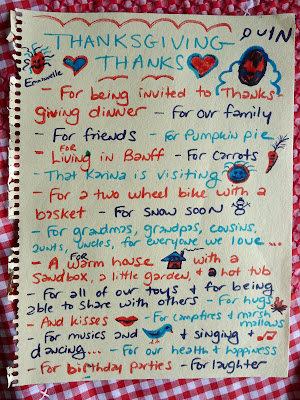 QUIN
THANKSGIVING
THANKS
Emanuelle
- For being invited to Thanks-
giving dinner - For our family
- For friends - For Pumpkin pie
- FOR Living in Banff - For carrots
- That Karina is visiting
- For a two wheel bike with a
basket - For snow soon
- For grandmas, grandpas, cousins,
aunts, uncles, for everyone we love...
- FOR A warm house with a
sandbox, a little garden, & a hot tub
- For all of our toys & for being
able to share with others - For hugs
- And kisses - For campfires & marsh
mallows
- For musics and & singing &
dancing... - For our health & happiness
- For birthday parties - For laughter